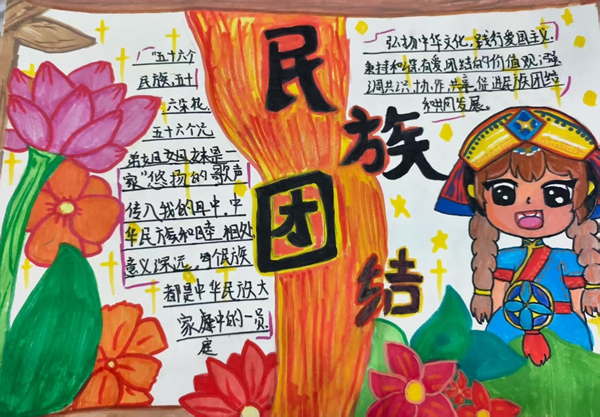 "五十六个
民族五十
六朵花,
五十六个兄
弟姐妹是一
家"悠扬的歌声
传入我的耳中,中
华民族和睦相处
意义深远,每个民族
都是中华民族大
家庭中的一员.
庭
民
族
团
结
弘扬中华文化,践行爱国主义.
秉持和谐有爱团结的价值观,强
调共识,协作,共享,促进民族团结
和共同发展.